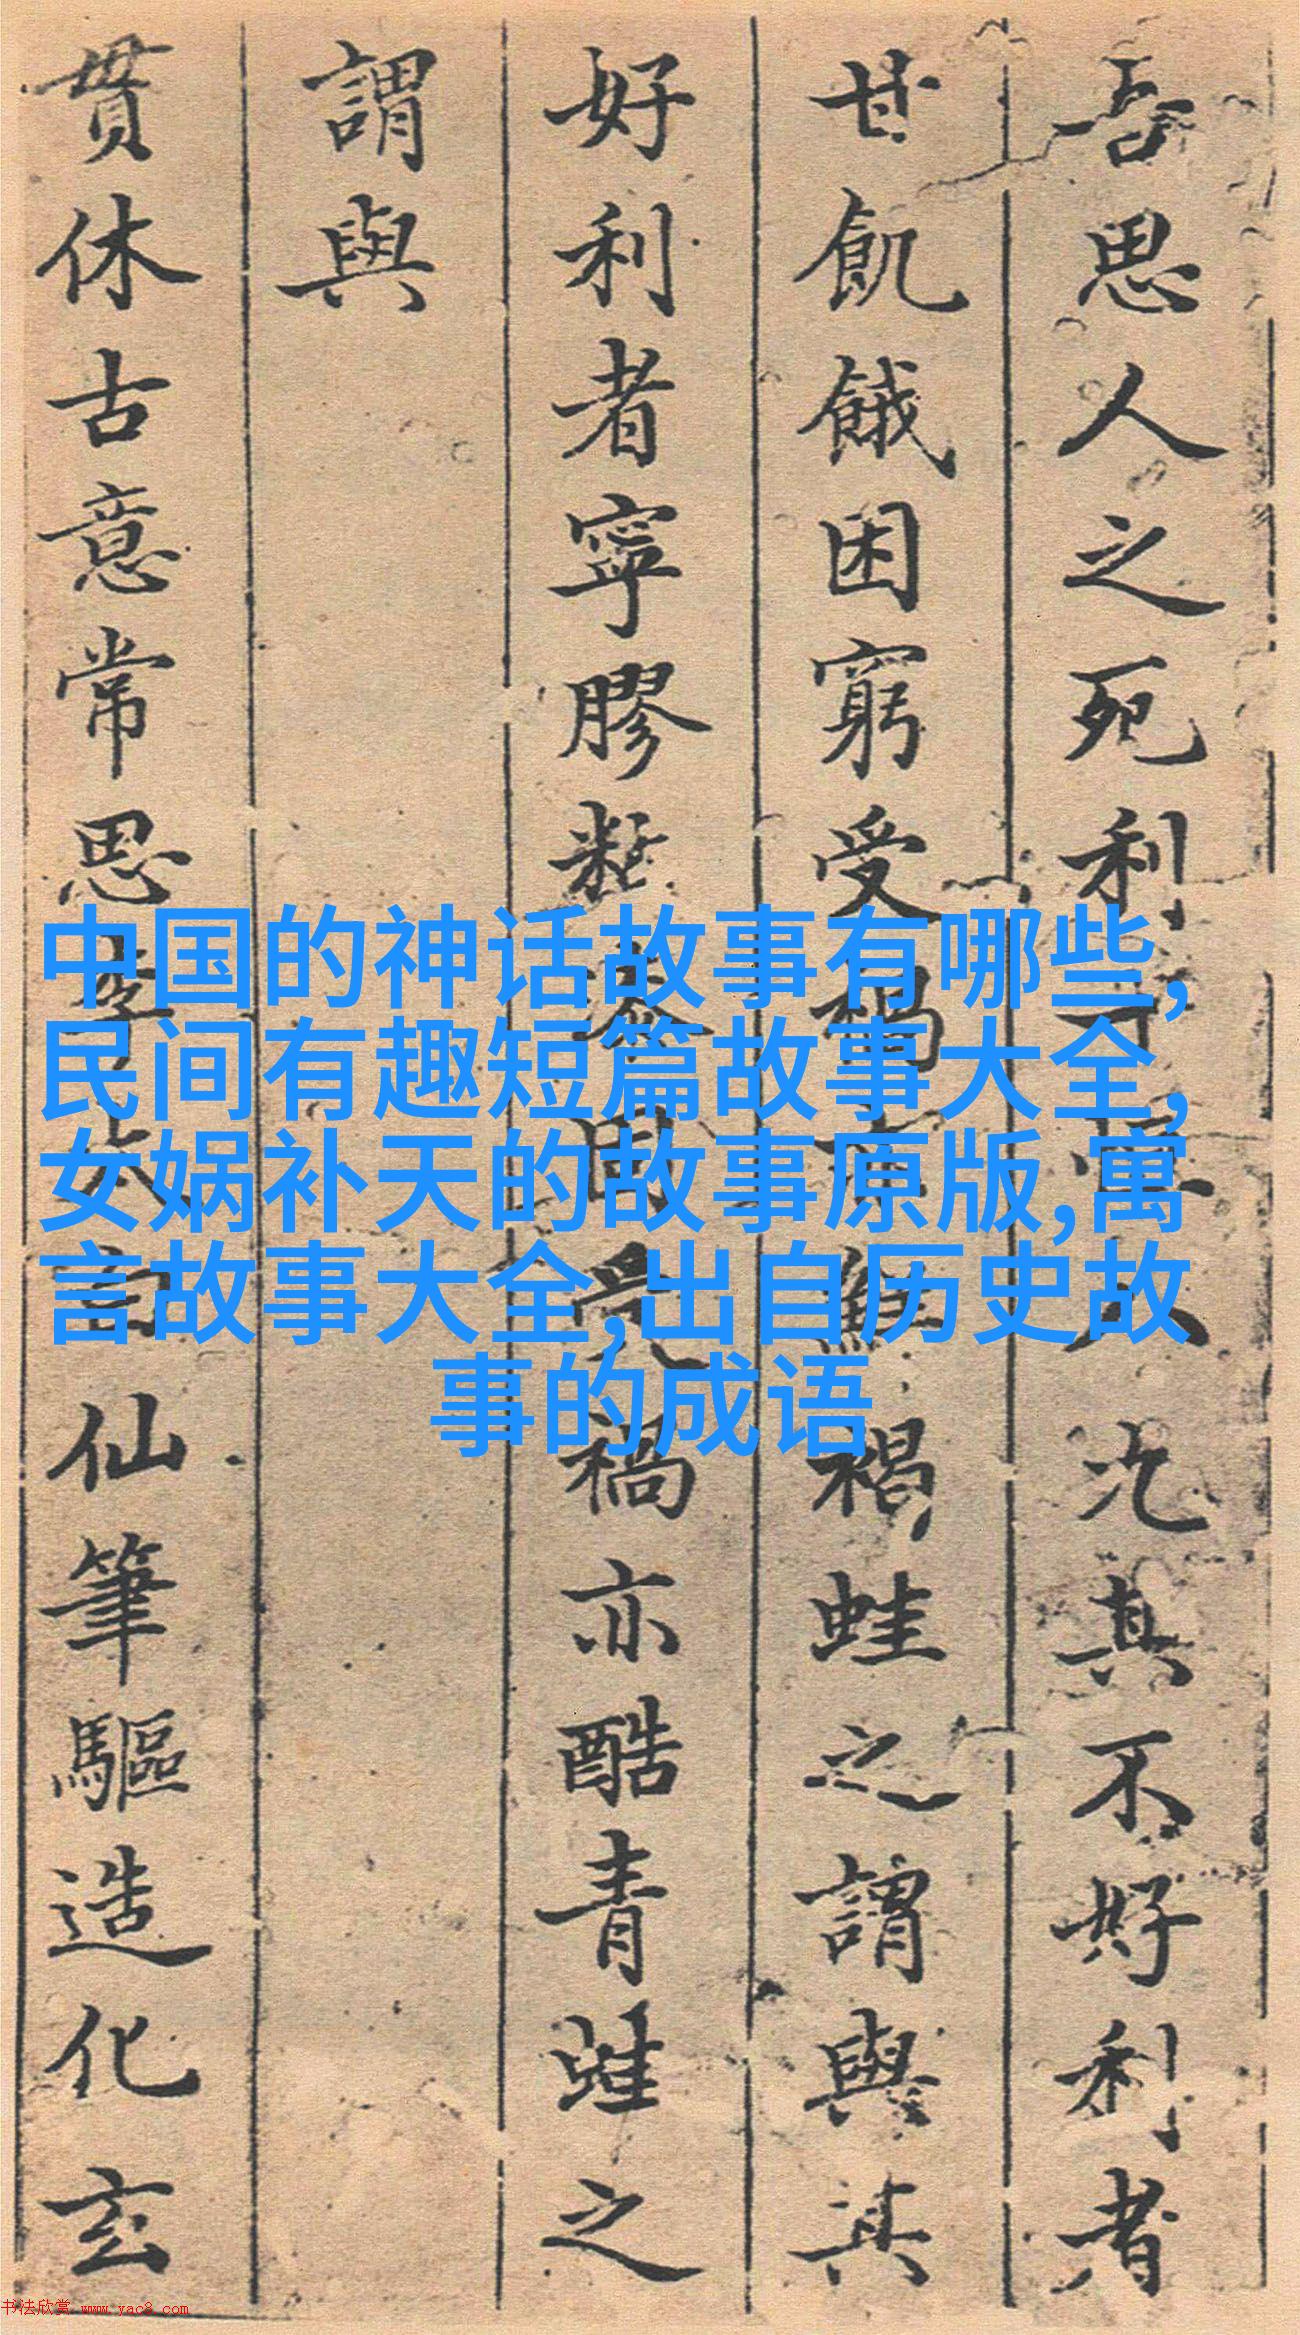 吾思人之死利人況其不好利者
甘飢餓困窮受蛙之謂與其
好利者寧膠禍亦酷青蛙之
謂與
貫休古意常思李太白仙筆驅造化玄
中国的神话故事有哪些,
民间有趣短篇故事大全,
女娲补天的故事原版,寓
言故事大全,出自历史故
事的成语
书法欣赏 www.yac8.com